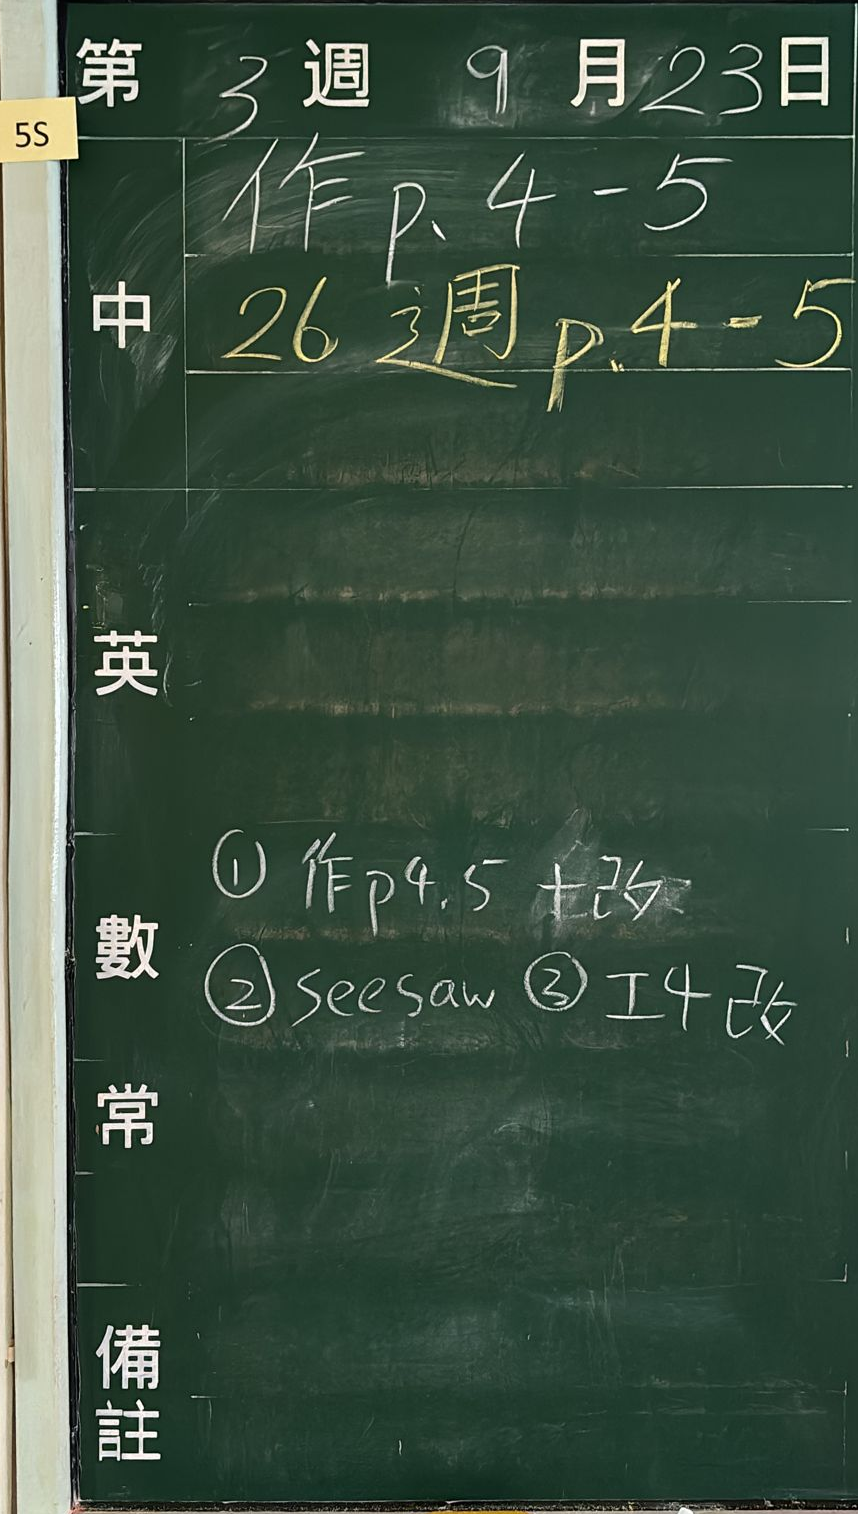 第 3 週 9 月 23 日
5S
作 p. 4 - 5
中
26 週 p. 4 - 5
英
① 作 p4.5 +改
數
② seesaw ③ 工4 改
常
備
註